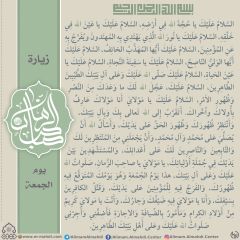 بسم الله الرحمن الرحيم
السَّلامُ عَلَيْكَ يا حُجَّةَ اللهِ في أَرْضِهِ، السَّلامُ عَلَيْكَ يا عَيْنَ اللهِ في
خَلْقِهِ، السَّلامُ عَلَيْكَ يا نُورَ اللهِ الَّذي يَهْتَدي بِهِ المُهْتَدونَ وَيُفَرَّجُ بِهِ
عَنِ المُؤْمِنينَ، السَّلامُ عَلَيْكَ أَيُّها المُهَذَّبُ الخائِفُ، السَّلامُ عَلَيْكَ
أَيُّها الوَلِيُّ النّاصِحُ، السَّلامُ عَلَيْكَ يا سَفينَةَ النَّجاةِ، السَّلامُ عَلَيْكَ يا
عَيْنَ الحَياةِ، السَّلامُ عَلَيْكَ صَلَّى اللهُ عَلَيْكَ وَعَلى آلِ بَيْتِكَ الطَّيِّبينَ
الطّاهِرينَ، السَّلامُ عَلَيْكَ عَجَّلَ اللهُ لَكَ ما وَعَدَكَ مِنَ النَّصْرِ
وَظُهورِ الأَمْرِ، السَّلامُ عَلَيْكَ يا مَوْلايَ أَنا مَوْلاكَ عارِفٌ
بِأُولاكَ وَأُخْراكَ، أَتَقَرَّبُ إِلى اللهِ تَعالى بِكَ وَبِآلِ بَيْتِكَ،
وَأَنْتَظِرُ ظُهورَكَ وَظُهورَ الحَقِّ عَلى يَدَيْكَ، وَأَسْأَلُ اللهَ أَنْ
يُصَلِّيَ عَلى مُحَمَّدٍ وَآلِ مُحَمَّدٍ، وَأَنْ يَجْعَلَني مِنَ المُنْتَظِرينَ لَكَ
وَالتّابِعينَ وَالنّاصِرينَ لَكَ عَلى أَعْدائِكَ، وَالمُسْتَشْهَدينَ بَيْنَ
يَدَيْكَ في جُمْلَةِ أَوْلِيائِكَ، يا مَوْلايَ يا صاحِبَ الزَّمانِ، صَلَواتُ اللهِ
عَلَيْكَ وَعَلى آلِ بَيْتِكَ، هذا يَوْمُ الجُمُعَةِ وَهُوَ يَوْمُكَ المُتَوَقَّعُ فيهِ
ظُهورُكَ، وَالفَرَجُ فيهِ لِلْمُؤْمِنينَ عَلى يَدَيْكَ، وَقَتْلُ الكافِرينَ
بِسَيْفِكَ، وَأَنا يا مَوْلايَ فيهِ ضَيْفُكَ وَجارُكَ، وَأَنْتَ يا مَوْلايَ كَريمٌ
مِنْ أَوْلادِ الكِرامِ وَمَأْمورٌ بِالضِّيافَةِ وَالإِجارَةِ فَأَضِفْني وَأَجِرْني
صَلَواتُ اللهِ عَلَيْكَ وَعَلى أَهْلِ بَيْتِكَ الطّاهِرينَ
زيارة
صاحب الزمان
يوم
الجمعة